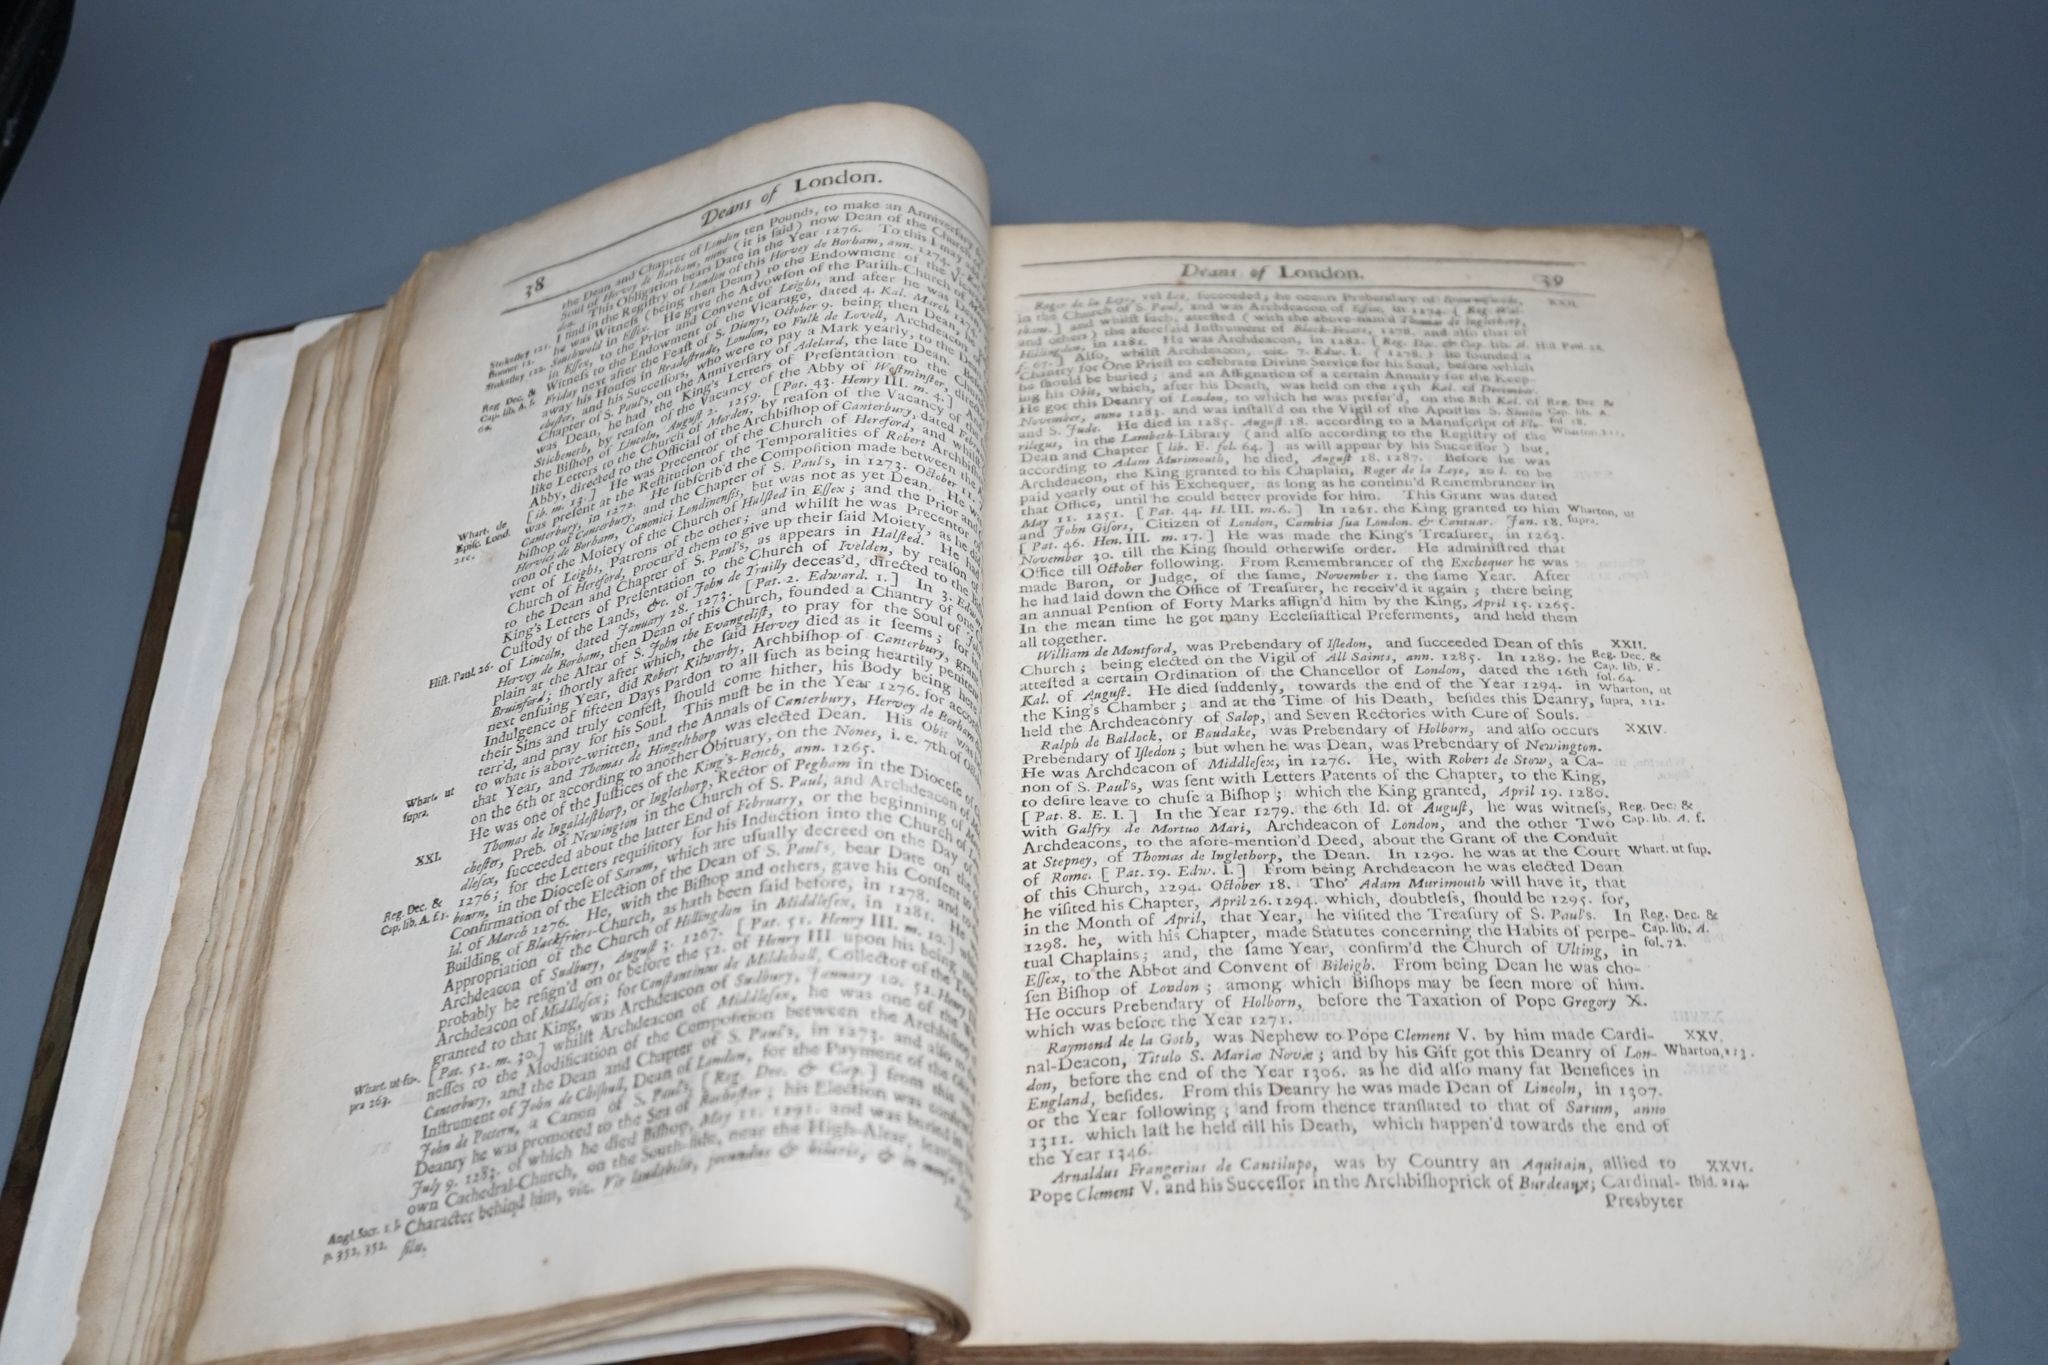 38
Deans of London.
the Dean and Chapter of London ten Pounds, to make an Anniversary
Soul of Hervey de Borham, nunc (it is ſaid) now Dean of the Church
dea. This Obligation bears Date in the Year 1276. To this I may add
I find in the Regiſtry of London of this Hervey de Borham, ann. 1274. 5. Kal.
Stokeſley 121. he was Witneſs (being then Dean) to the Endowment of the
Bonner 12. Southweld in Eſſex. He gave the Advowſon of the Pariſh-Church of
Stokeſley 122. in Eſſex, to the Prior and Convent of Leighs, and after he was Dean,
Witneſs to the Endowment of the Vicarage, dated 4. Kal. March
Reg. Dec. & Friday next after the Feaſt of S. Dionys, October 9. being then Dean,
Cap. lib. A. f. away his Houſes in Bradſtrade, London, to Fulk de Lovell, Archdeacon
60. and his Succeſſors, who were to pay a Mark yearly, to the Dean
Chapter of S. Paul's, on the Anniverſary of Adelard, the late Dean.
was Dean, he had the King's Letters of Preſentation to the Church
Sticheneth, by reaſon of the Vacancy of the Abby of Weſtminſter, directed
the Biſhop of Lincoln, Auguſt 2. 1259. [Pat. 43. Henry III. m. 4.] And
like Letters to the Church of Morden, by reaſon of the Vacancy of
Abby, directed to the Official of the Archbiſhop of Canterbury, dated
[ib. m. 13.] He was Precentor of the Church of Hereford, and
was preſent at the Reſtitution of the Temporalities of Robert Archbiſhop
Canterbury, in 1272. He ſubſcrib'd the Compoſition made between the
Whart. de biſhop of Canterbury, and the Chapter of S. Paul's, in 1273. October 11.
Epiſc. Lond. Hervice de Borham, Canonici Londinenſis, but was not as yet Dean. He
tion of the Moiety of the Church of Halſted in Eſſex; and the Prior and
vent of Leighs, Patrons of the other; and whilſt he was Precentor
Church of Hereford, procur'd them to give up their ſaid Moiety, as he did
to the Dean and Chapter of S. Paul's, as appears in Halſted. He
King's Letters of Preſentation to the Church of Ivelden, by reaſon of
Cuſtody of the Lands, &c. of John de Truilly deceas'd, directed to the
Hiſt. Paul. 26. of Lincoln, dated January 28. 1273. [Pat. 2. Edward. I.] In 3. Edw.
Hervey de Borham, then Dean of this Church, founded a Chantry of one
plain at the Altar of S. John the Evangeliſt, to pray for the Soul of
Bruinford; ſhortly after which, the ſaid Hervey died as it ſeems; for
next enſuing Year, did Robert Kilwarby, Archbiſhop of Canterbury, grant
Indulgence of fifteen Days Pardon to all ſuch as being heartily penitent
their Sins and truly confeſt, ſhould come hither, his Body being here
terr'd, and pray for his Soul. This muſt be in the Year 1276. for
to what is above-written, and the Annals of Canterbury, Hervey de Borham
that Year, and Thomas de Hingelthorp was elected Dean. His Obit was
Whart. ut on the 6th or according to another Obituary, on the Nones, i. e. 7th of
ſupra. He was one of the Juſtices of the King's-Bench, ann. 1265.
XXI. Thomas de Ingaldeſthorp, or Inglethorp, Rector of Pegham in the Dioceſe of
cheſter, Preb. of Newington in the Church of S. Paul, and Archdeacon of
dleſex, ſucceeded about the latter End of February, or the beginning of
1276; for the Letters requiſitory for his Induction into the Church
Reg. Dec. & bourn, in the Dioceſe of Sarum, which are uſually decreed on the Day
Cap. lib. A. f. 1. Confirmation of the Election of the Dean of S. Paul's, bear Date on the
Id. of March 1276. He, with the Biſhop and others, gave his Conſent to
Building of Blackfriers-Church, as hath been ſaid before, in 1278. and to
Appropriation of the Church of Hillingdon in Middleſex, in 1281. He was
Archdeacon of Sudbury, Auguſt 3. 1267. [Pat. 51. Henry III. m. 10.]
probably he reſign'd on or before the 52. of Henry III upon his being made
Archdeacon of Middleſex; for Conſtantinus de Mildehall, Collector of the
granted to that King, was Archdeacon of Sudbury, January 10. 52. Henry
[Pat. 52. m. 30.] whilſt Archdeacon of Middleſex, he was one of the
Whart. ut ſu- neſſes to the Modification of the Compoſition between the Archbiſhop
pra 263. Canterbury, and the Dean and Chapter of S. Paul's, in 1273. and alſo to
Inſtrument of John de Chiſhull, Dean of London, for the Payment of the
John de Pottern, a Canon of S. Paul's, [Reg. Dec. & Cap.] from this
Deanry he was promoted to the Sea of Rocheſter; his Election was confirm'd
July 9. 1283. of which he died Biſhop, May 11. 1291. and was buried in
own Cathedral-Church, on the South-ſide, near the High-Altar, leaving
Angl. Sacr. 1. l. Character behind him, viz. Vir laudabilis, jocundus & hilaris, &
p. 352, 352. ſilis.
Deans of London. 39
Roger de la Leye, vel Lee, ſucceeded; he occurs Prebendary of XXII.
in the Church of S. Paul, and was Archdeacon of Eſſex, in 1274. [Reg. Wal-
tham.] and whilſt ſuch, atteſted (with the above-nam'd Thomas de Inglethorp,
and others) the aforeſaid Inſtrument of Black-Friars, 1278. and alſo that of
Hillingdon, in 1281. He was Archdeacon, in 1282. [Reg. Dec. & Cap. lib. A. Hiſt. Paul. 28.
f. 67.] Alſo, whilſt Archdeacon, viz. 7. Edw. I. (1278.) he founded a
Chantry for One Prieſt to celebrate Divine Service for his Soul, before which
he ſhould be buried; and an Aſſignation of a certain Annuity for the Keep-
ing his Obit, which, after his Death, was held on the 15th Kal. of December.
He got this Deanry of London, to which he was prefer'd, on the 8th Kal. of Reg. Dec. &
November, anno 1283. and was inſtall'd on the Vigil of the Apoſtles S. Simon Cap. lib. A.
and S. Jude. He died in 1285. Auguſt 18. according to a Manuſcript of Flo- fol. 18.
rilegus, in the Lambeth-Library (and alſo according to the Regiſtry of the Wharton, 211.
Dean and Chapter [lib. F. fol. 64.] as will appear by his Succeſſor) but,
according to Adam Murimouth, he died, Auguſt 18. 1287. Before he was
Archdeacon, the King granted to his Chaplain, Roger de la Leye, 20 l. to be
paid yearly out of his Exchequer, as long as he continu'd Remembrancer in
that Office, until he could better provide for him. This Grant was dated
May 11. 1251. [Pat. 44. H. III. m. 6.] In 1261. the King granted to him Wharton, ut
and John Giſors, Citizen of London, Cambia ſua London. & Cantuar. Jan. 18. ſupra.
[Pat. 46. Hen. III. m. 17.] He was made the King's Treaſurer, in 1263.
November 30. till the King ſhould otherwiſe order. He adminiſtred that
Office till October following. From Remembrancer of the Exchequer he was
made Baron, or Judge, of the ſame, November 1. the ſame Year. After
he had laid down the Office of Treaſurer, he receiv'd it again; there being
an annual Penſion of Forty Marks aſſign'd him by the King, April 15. 1265.
In the mean time he got many Eccleſiaſtical Preferments, and held them
all together.
William de Montford, was Prebendary of Iſledon, and ſucceeded Dean of this XXIII.
Church; being elected on the Vigil of All Saints, ann. 1285. In 1289. he Reg. Dec. &
atteſted a certain Ordination of the Chancellor of London, dated the 16th Cap. lib. F.
Kal. of Auguſt. He died ſuddenly, towards the end of the Year 1294. in fol. 64.
the King's Chamber; and at the Time of his Death, beſides this Deanry, Wharton, ut
held the Archdeaconry of Salop, and Seven Rectories with Cure of Souls. ſupra, 212.
Ralph de Baldock, or Baudake, was Prebendary of Holborn, and alſo occurs XXIV.
Prebendary of Iſledon; but when he was Dean, was Prebendary of Newington.
He was Archdeacon of Middleſex, in 1276. He, with Robert de Stow, a Ca-
non of S. Paul's, was ſent with Letters Patents of the Chapter, to the King,
to deſire leave to chuſe a Biſhop; which the King granted, April 19. 1280.
[Pat. 8. E. I.] In the Year 1279. the 6th Id. of Auguſt, he was witneſs, Reg. Dec. &
with Galfry de Mortuo Mari, Archdeacon of London, and the other Two Cap. lib. A. f.
Archdeacons, to the afore-mention'd Deed, about the Grant of the Conduit
at Stepney, of Thomas de Inglethorp, the Dean. In 1290. he was at the Court Whart. ut ſup.
of Rome. [Pat. 19. Edw. I.] From being Archdeacon he was elected Dean
of this Church, 1294. October 18. Tho' Adam Murimouth will have it, that
he viſited his Chapter, April 26. 1294. which, doubtleſs, ſhould be 1295. for,
in the Month of April, that Year, he viſited the Treaſury of S. Paul's. In Reg. Dec. &
1298. he, with his Chapter, made Statutes concerning the Habits of perpe- Cap. lib. A.
tual Chaplains; and, the ſame Year, confirm'd the Church of Ulting, in fol. 72.
Eſſex, to the Abbot and Convent of Bileigh. From being Dean he was cho-
ſen Biſhop of London; among which Biſhops may be ſeen more of him.
He occurs Prebendary of Holborn, before the Taxation of Pope Gregory X.
which was before the Year 1271.
Raymond de la Goth, was Nephew to Pope Clement V. by him made Cardi- XXV.
nal-Deacon, Titulo S. Mariæ Novæ; and by his Gift got this Deanry of Lon- Wharton, 213.
don, before the end of the Year 1306. as he did alſo many fat Benefices in
England, beſides. From this Deanry he was made Dean of Lincoln, in 1307.
or the Year following; and from thence tranſlated to that of Sarum, anno
1311. which laſt he held till his Death, which happen'd towards the end of
the Year 1346.
Arnaldus Frangerius de Cantilupo, was by Country an Aquitain, allied to XXVI.
Pope Clement V. and his Succeſſor in the Archbiſhoprick of Burdeaux; Cardinal- Ibid. 214.
Presbyter